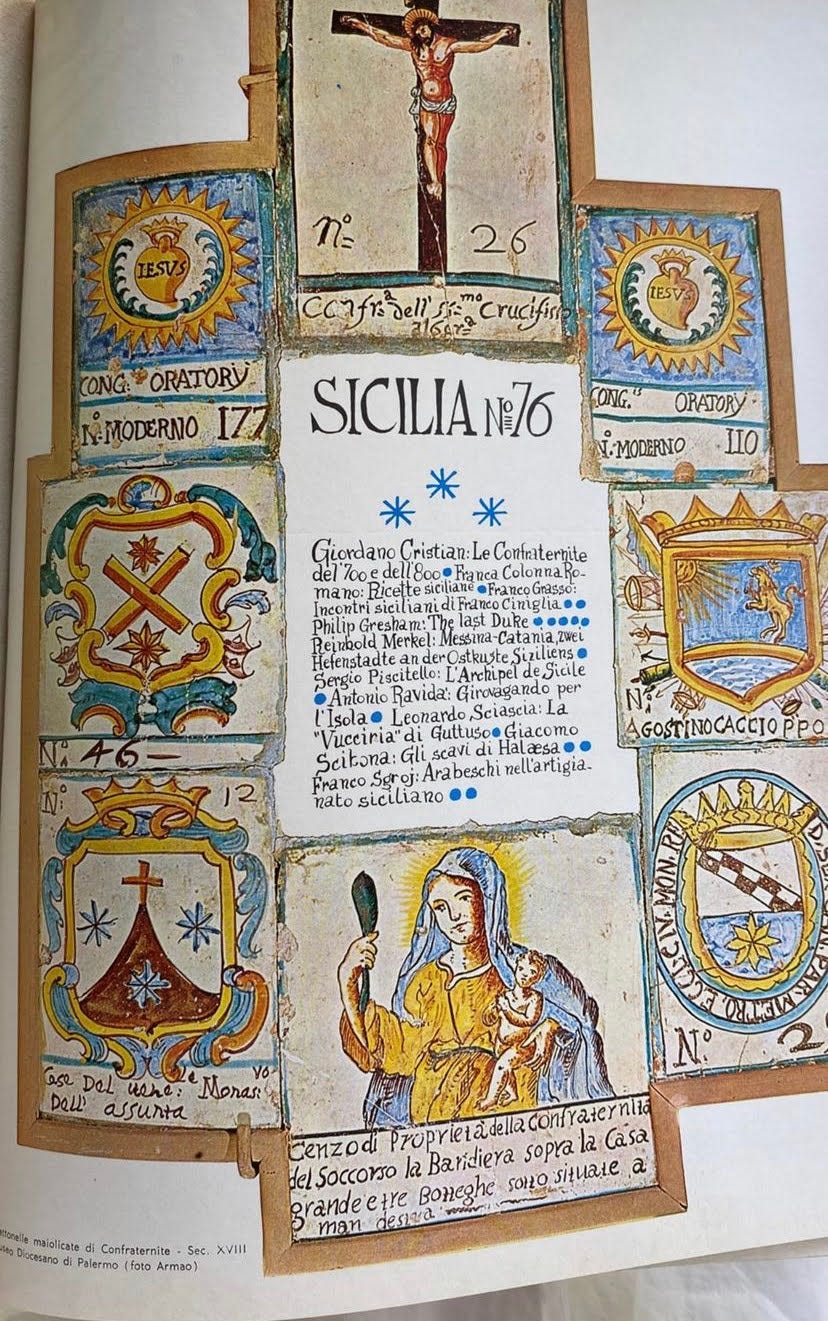 Nº 26
Confr.ª dell' SS.mo Crucifisso
IESVS
CONG. ORATORY
N. MODERNO 177
IESVS
CONG.s ORATORY
N. MODERNO 110
SICILIA Nº 76
Giordano Cristian: Le Confraternite
del '700 e dell'800 • Franca Colonna Ro-
mano: Ricette siciliane • Franco Grasso:
Incontri siciliani di Franco Ciniglia ••
Philip Gresham: The last Duke •••••
Reinhold Merkel: Messina-Catania, zwei
Hefenstadte an der Ostkuste Siziliens •
Sergio Piscitello: L'Archipel de Sicile
• Antonio Ravidà: Girovagando per
l'Isola • Leonardo Sciascia: La
"Vucciria" di Guttuso • Giacomo
Scibona: Gli scavi di Halæsa ••
Franco Sgroj: Arabeschi nell'artigia-
nato siciliano ••
N: 46-
N:
AGOSTINO CACCIOPPO
N: 12
Case Del vene:le Monas:vo
Dell' assunta
ECCL. CIV. MON. RE
D. S. N PAR. METRO.
Nº 2
Cenzo di Proprietà della Confraternita
del Soccorso la Baridiera sopra la Casa
grande e tre Botteghe sotto situate a
man destra
ttonelle maiolicate di Confraternite - Sec. XVIII
useo Diocesano di Palermo (foto Armao)